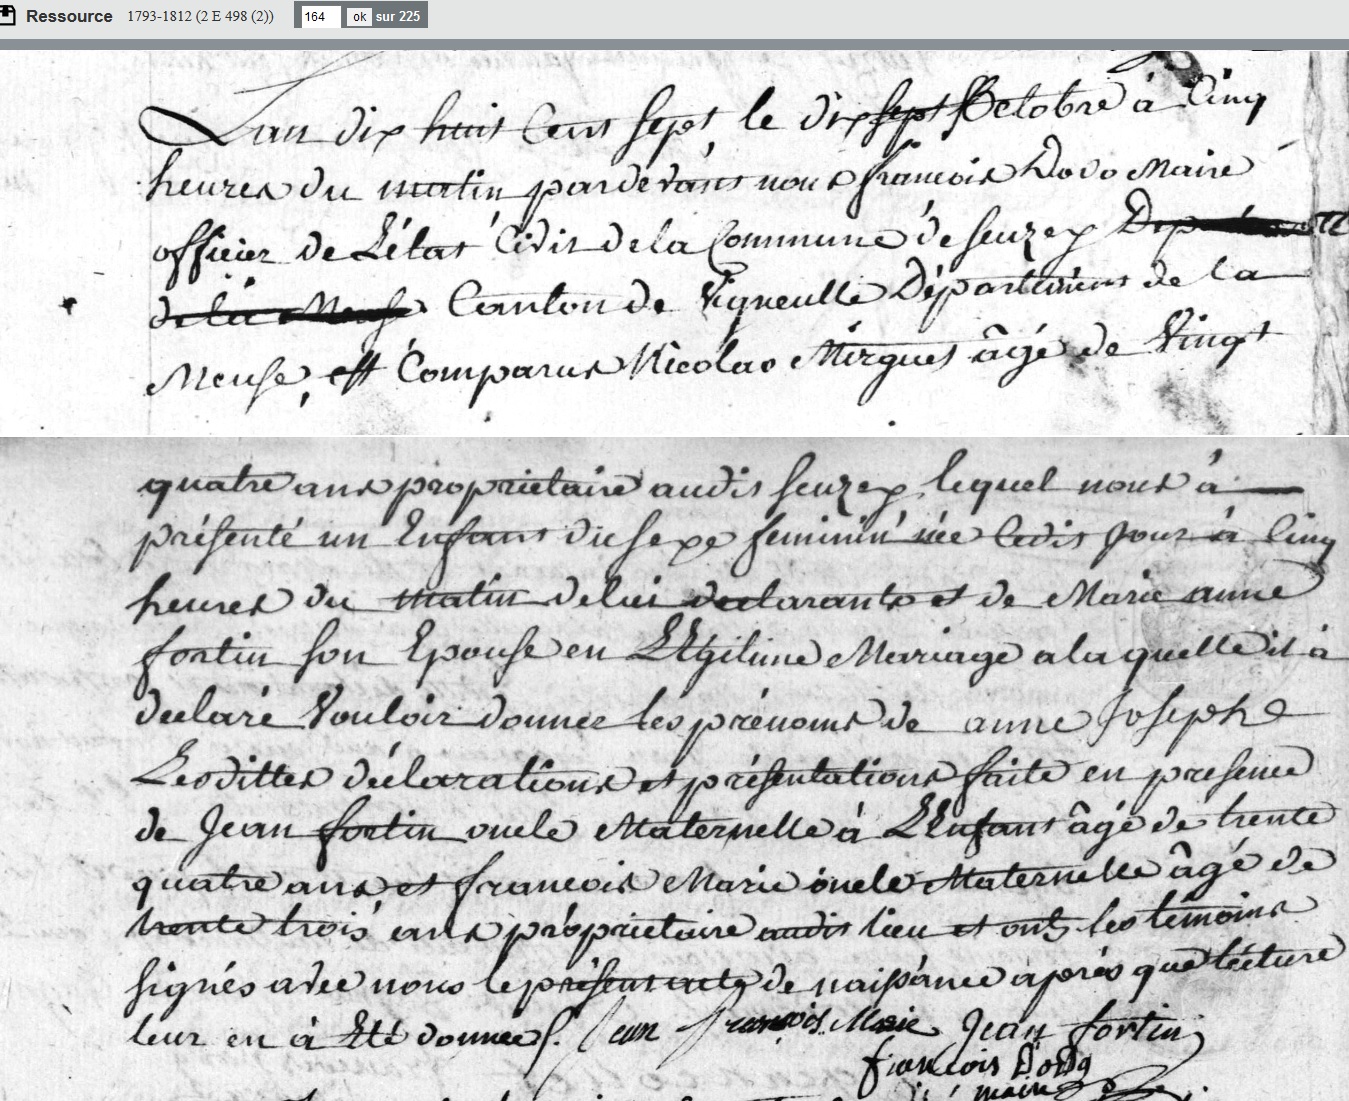 Ressource 1793-1812 (2 E 498 (2)) 164 ok sur 225
L'an dix huit Cent sept le dix sept Octobre à Cinq
heures du matin pardevant nous francois Dodo Maire
officier de L'état Civil de la Commune de Seuzey
de la Meuse Canton de Vigneulle Département de la
Meuse, est Comparus Nicolas Mirguet âgé de Vingt
quatre ans propriétaire audit Seuzey lequel nous à
présenté un Enfant du sexe féminin née ledit Jour à Cinq
heures du matin de lui declarant et de Marie anne
fortin son Epouse en LEgitime Mariage a la quelle il à
declaré Vouloir donner les prénoms de anne Joseph
Lesdittes déclarations et présentations faite en presence
de Jean fortin oncle Maternelle à L'Enfant âgé de trente
quatre ans et francois Marie oncle Maternelle âgé de
trente trois ans propriétaire audit lieu et ont les témoins
signés avec nous le présent acte de naissance après que lecture
leur en à Eté donnee /. Jean francois Marie Jean fortin
francois Dodo
maire